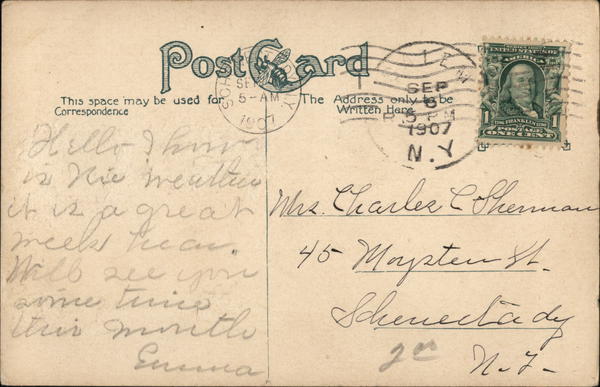 Post Card
This space may be used for
Correspondence
The Address only to be
Written Here.
SEP
5-AM
1907
SEP
5
5 PM
1907
N.Y
SERIES 1902
AMERICA
FRANKLIN
1 POSTAGE 1
ONE CENT
Hello How
is the weather
it is a great
week hear.
Will see you
some time
this month
Emma
Mrs. Charles C Sherman
45 Moyston St.
Schenectady
N.Y.